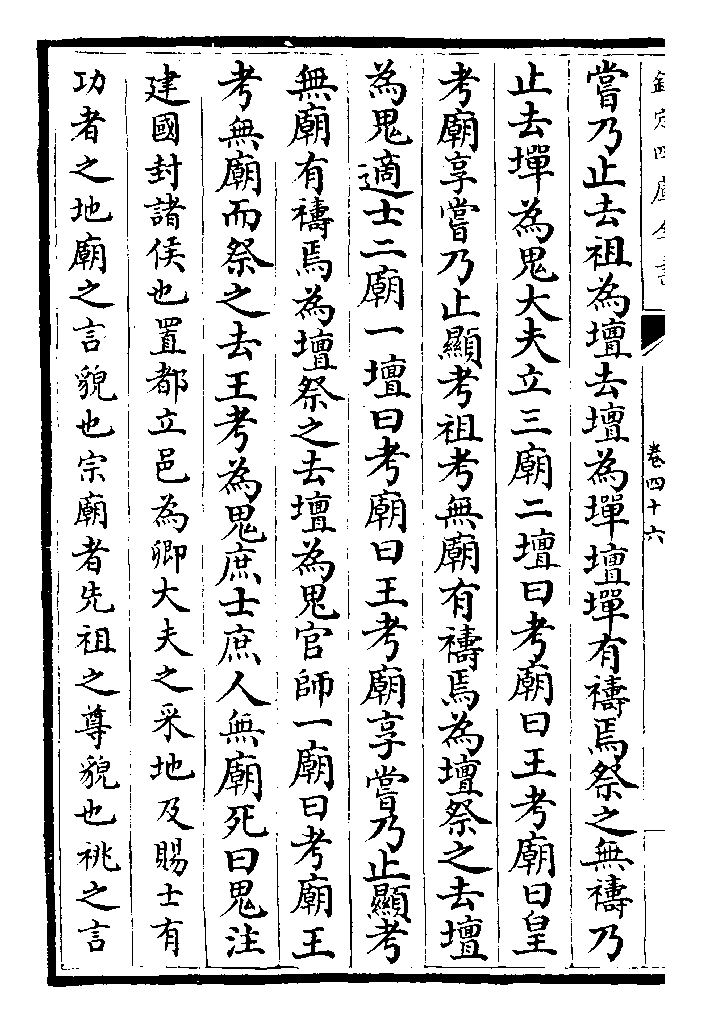 欽定四庫全書
卷四十六
嘗乃止去祖為壇去壇為墠壇墠有禱焉祭之無禱乃
止去墠為鬼大夫立三廟二壇曰考廟曰王考廟曰皇
考廟享嘗乃止顯考祖考無廟有禱焉為壇祭之去壇
為鬼適士二廟一壇曰考廟曰王考廟享嘗乃止顯考
無廟有禱焉為壇祭之去壇為鬼官師一廟曰考廟王
考無廟而祭之去王考為鬼庶士庶人無廟死曰鬼注
建國封諸侯也置都立邑為卿大夫之采地及賜士有
功者之地廟之言貌也宗廟者先祖之尊貌也祧之言